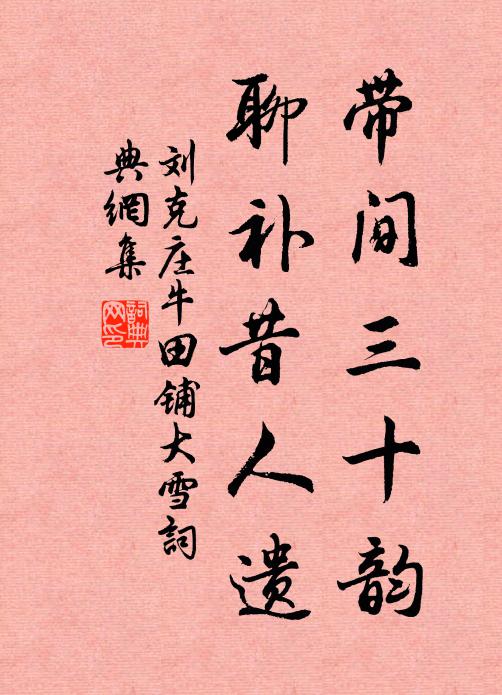 带间三十韵
聊补昔人遗
刘克庄牛田铺大雪词
典網集
詞典
网印